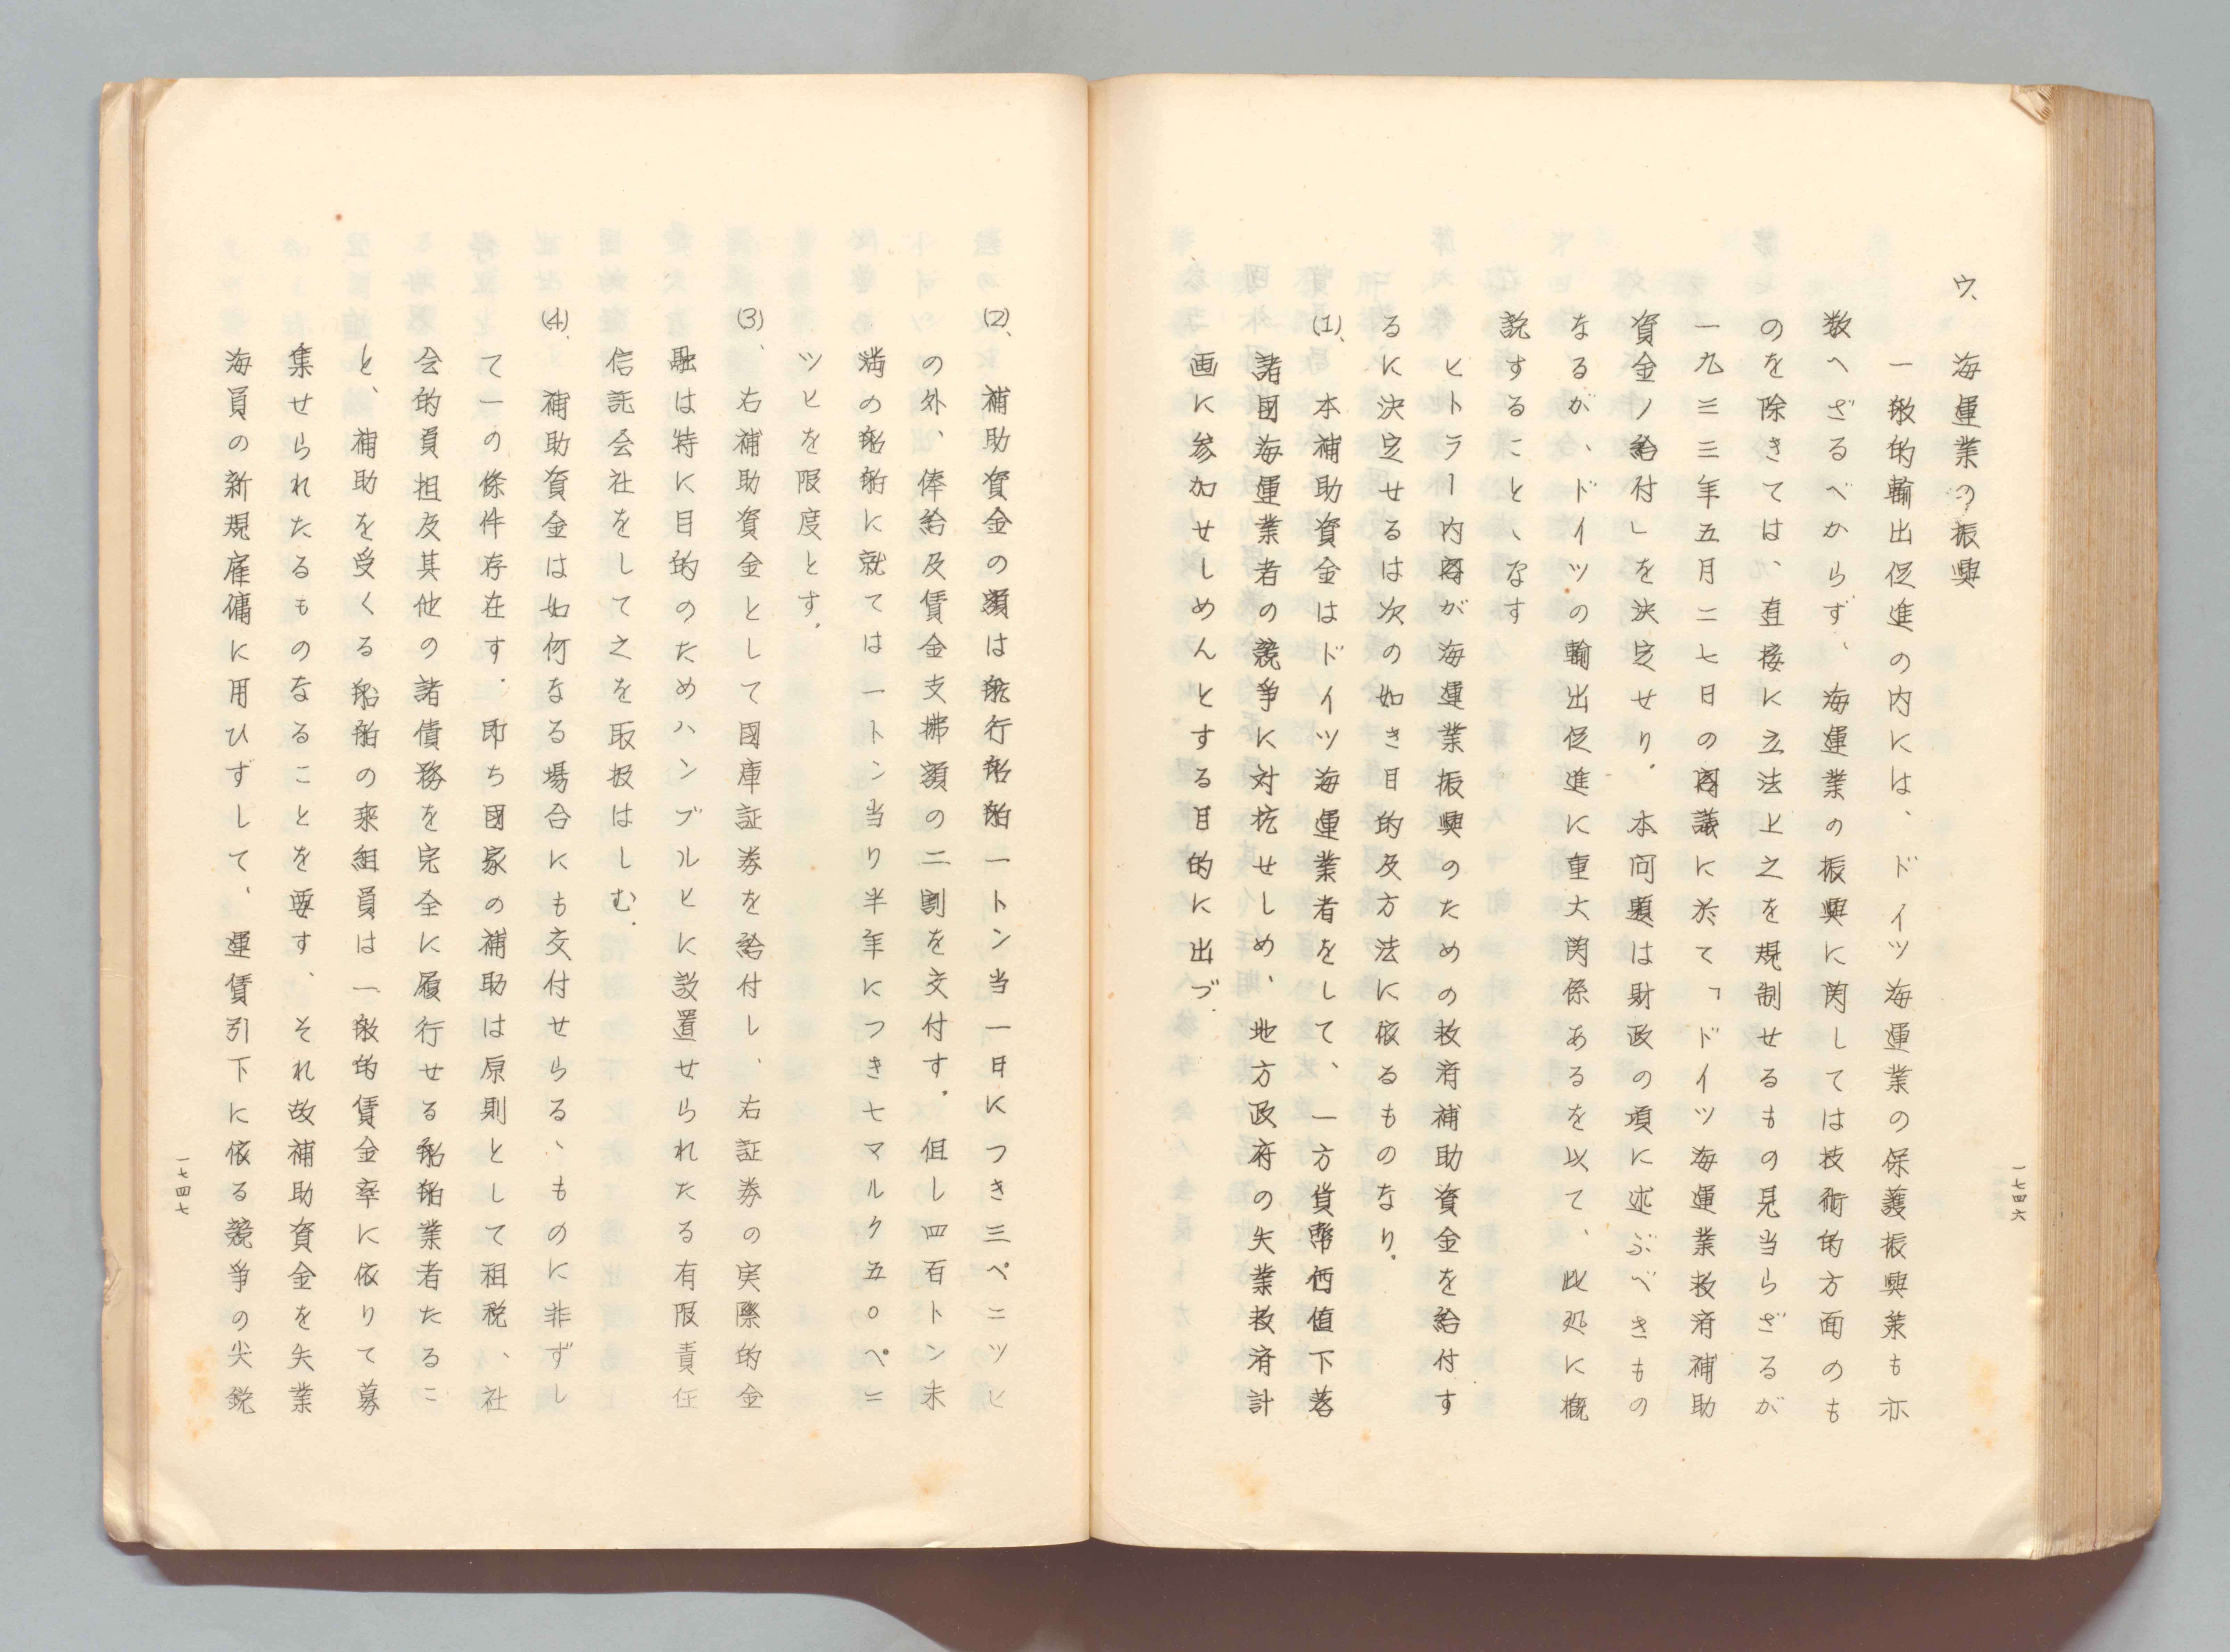 ウ、海運業の振興
一般的輸出促進の内には、ドイツ海運業の保護振興策も亦
数へざるべからず、海運業の振興に関しては技術的方面のも
のを除きては、直接に立法上之を規制せるもの見当らざるが
一九三三年五月二七日の閣議に於て「ドイツ海運業救済補助
資金ノ給付」を決定せり.本问題は財政の項に述ぶべきもの
なるが、ドイツの輸出促進に重大関係あるを以て、此処に概
説することゝなす
ヒトラー内閣が海運業振興のための救済補助資金を給付す
るに決定せるは次の如き目的及方法に依るものなり.
(1)、本補助資金はドイツ海運業者をして、一方貨幣価値下落
諸国海運業者の競争に対抗せしめ、地方政府の失業救済計
画に参加せしめんとする目的に出づ.
一七四六
(2)、補助資金の額は航行船舶一トン当一日につき三ペニツヒ
の外、俸給及賃金支拂額の二割を交付す.但し四百トン未
満の船舶に就ては一トン当り半年につき七マルク五〇ペニ
ツヒを限度とす.
(3)、右補助資金として國庫証券を給付し、右証券の実際的金
融は特に目的のためハンブルヒに設置せられたる有限責任
信託会社をして之を取扱はしむ.
(4)、補助資金は如何なる場合にも交付せらるゝものに非ずし
て一の條件存在す.即ち国家の補助は原則として租税、社
会的負担及其他の諸債務を完全に履行せる船舶業者たるこ
と、補助を受くる船舶の乗組員は一般的賃金率に依りて募
集せられたるものなることを要す、それ故補助資金を失業
海員の新規雇傭に用ひずして、運賃引下に依る競争の尖鋭
一七四七